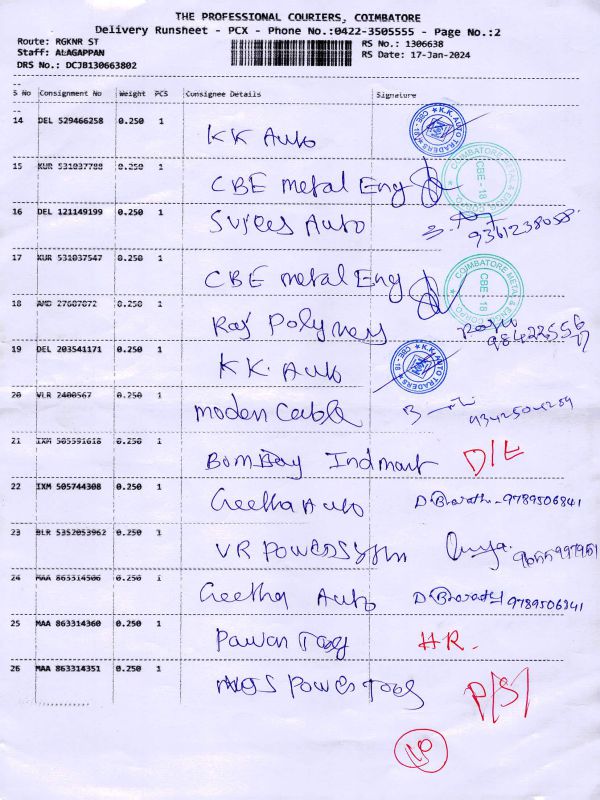 THE PROFESSIONAL COURIERS, COIMBATORE
Delivery Runsheet - PCX - Phone No.:0422-3505555 - Page No.:2
Route: RGKNR ST
RS No.: 1306638
Staff: ALAGAPPAN
RS Date: 17-Jan-2024
DRS No.: DCJB130663802
S No Consignment No Weight PCS Consignee Details Signature
14 DEL 529466258 0.250 1 KK Auto
K.K. AUTO TRADERS CBE-18
15 KUR 531037788 0.250 1 CBE metal Eng
COIMBATORE METAL & CBE - 18
16 DEL 121149199 0.250 1 Auto
17 KUR 531037547 0.250 1 CBE metal Eng
COIMBATORE METAL & CBE - 18
18 AMD 27687872 0.250 1 Raj Polymers
19 DEL 203541171 0.250 1 KK. Auto
K.K. AUTO TRADERS CBE-18
20 VLR 2400567 0.250 1 Moden Cable
21 IXM 505591618 0.250 1 Bombay Indmart D/L
22 IXM 505744308 0.250 1 Geetha Auto D Bharath - 9789506841
23 BLR 5352053962 0.250 1 VR Power System
24 MAA 863314506 0.250 1 Geetha Auto D Bharath 9789506341
25 MAA 863314360 0.250 1 Pawan HR.
26 MAA 863314351 0.250 1 Power Tools P/S/